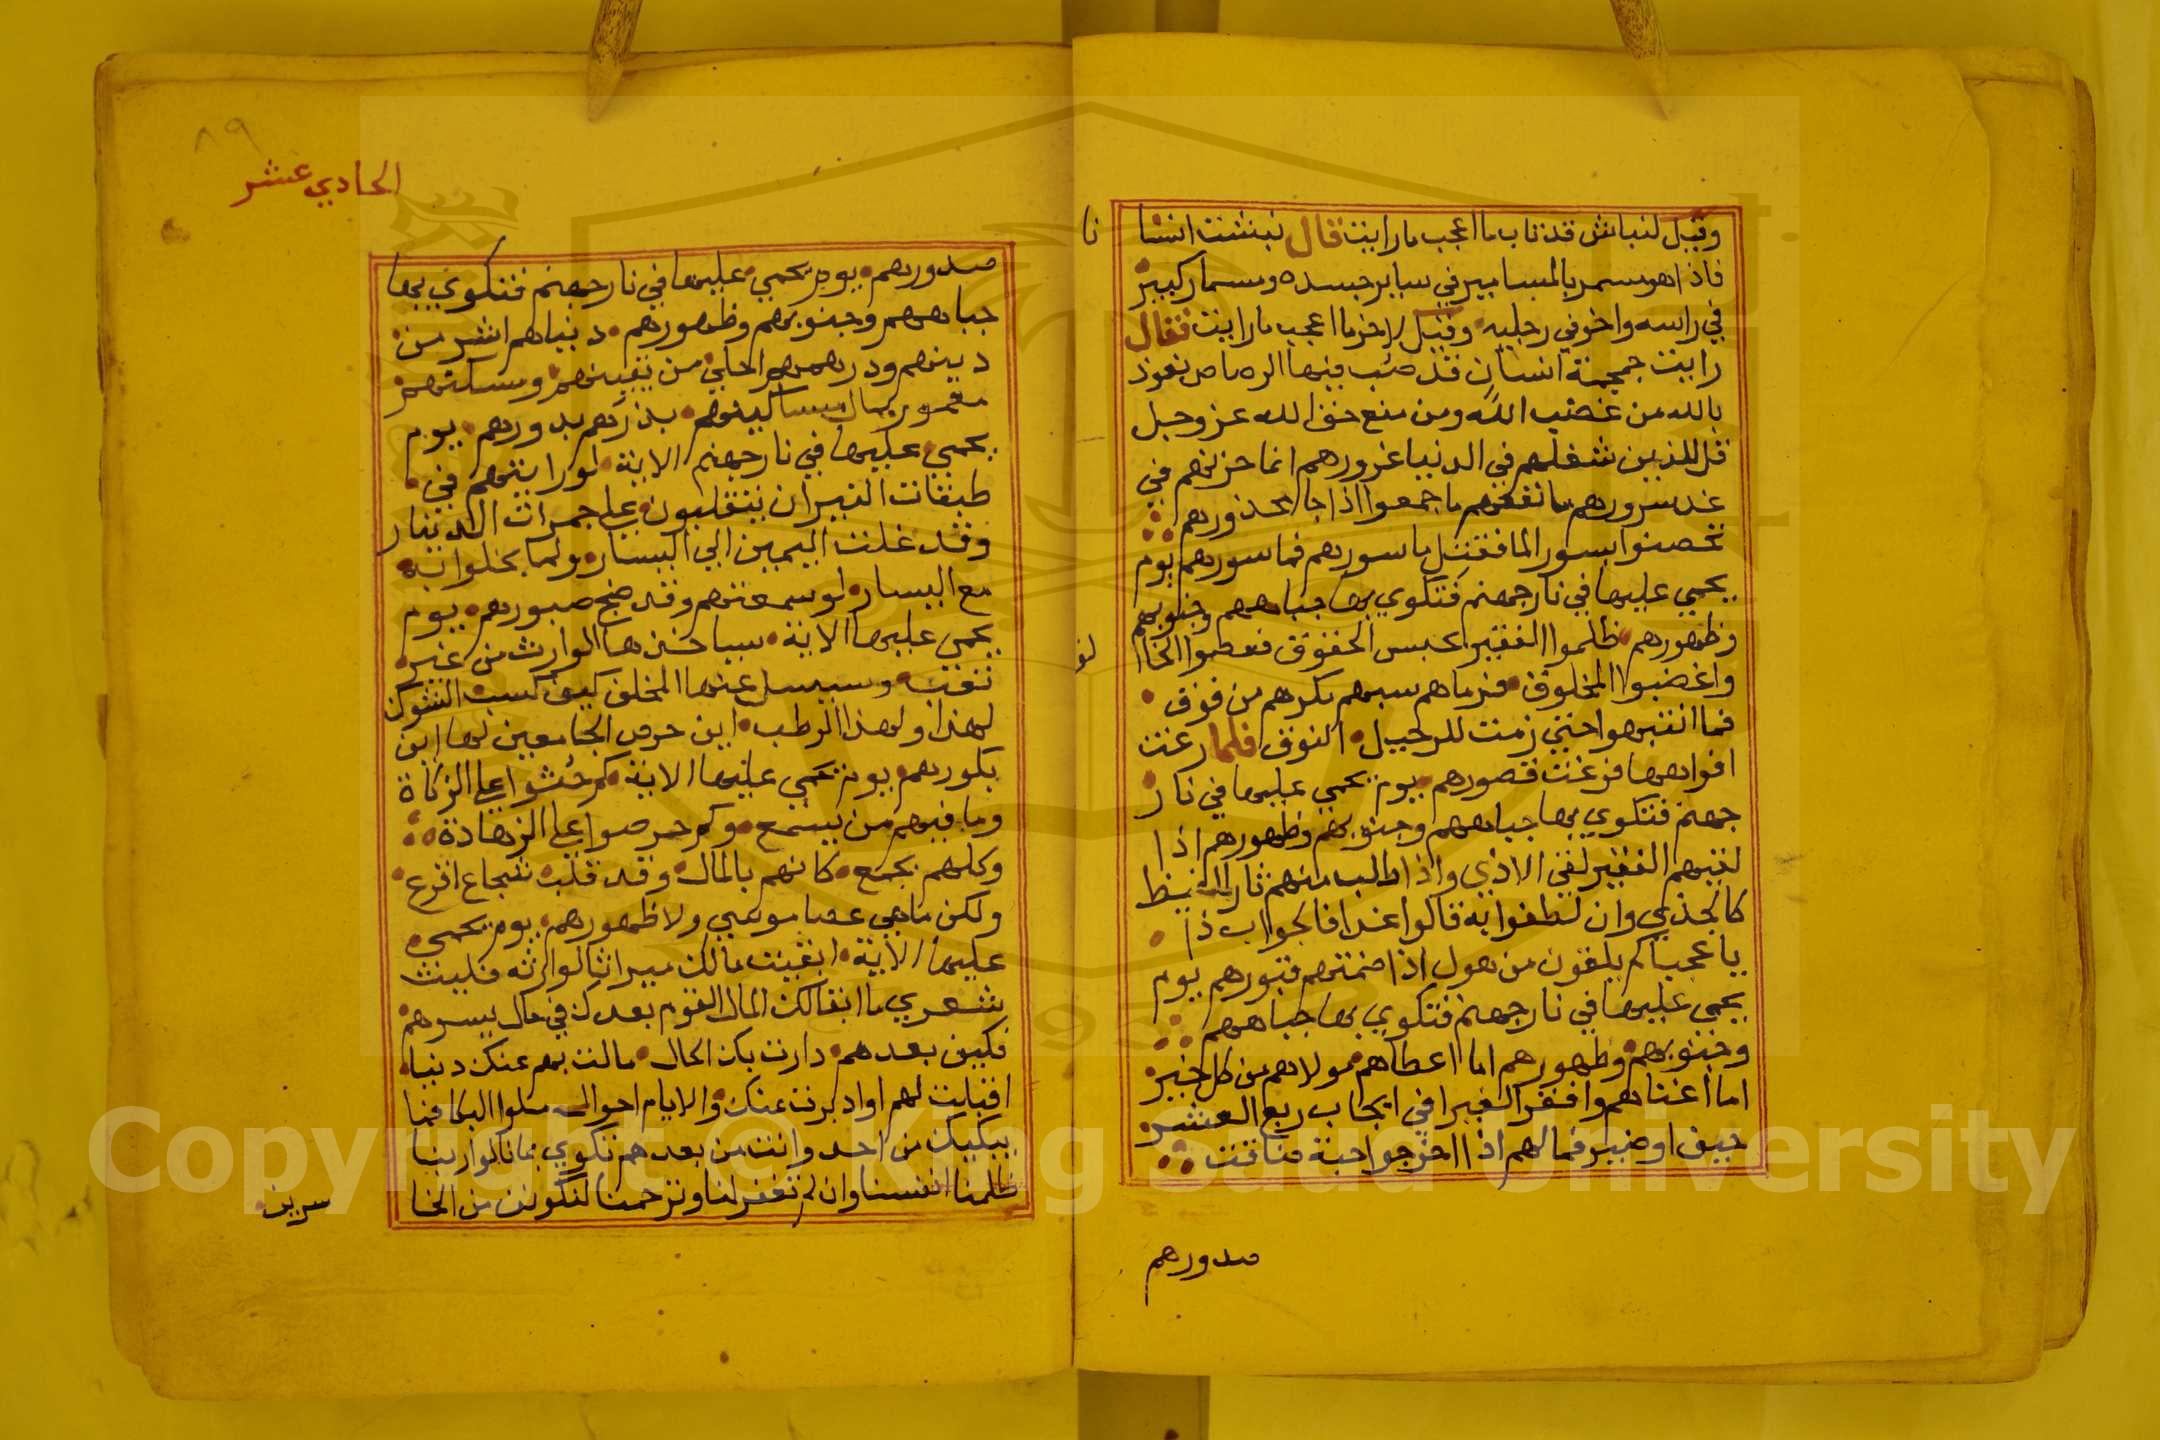 وقيل لنباش قد تاب ما اعجب ما رايت قال نبشت انسا
نا
فاذا هو مسمر بالمسامير في ساير جسده ومسمار كبير
في راسه واخر في رجليه وقيل لاخر ما اعجب ما رايت فقال
رايت جمجمة انسان قد صب فيها الرصاص نعوذ
بالله من غضب الله ومن منع حق الله عز وجل
قل للذين شغلهم في الدنيا غرورهم انما حزنهم في
غد سرورهم ما نفعهم ما جمعوا اذا جا محذورهم
يوم
يحمي عليها في نار جهنم فتكوي بها جباههم وجنوبهم
وظهورهم ظلموا الفقير بحبس الحقوق
واغضبوا المخلوق
فما انتبهوا حتي زمت للرحيل النوق فلما رغت
افواهها فرغت قصورهم يوم يحمي عليها في نار
جهنم فتكوي بها جباههم وجنوبهم وظهورهم اذا
لقيهم الفقير لقي الاذي واذا طلب منهم
كالجذي وان لطفوا به قالوا غدا فالجواب ذا
يا عجبا كم يلقون من هول اذا ضمتهم قبورهم يوم
يحمي عليها في نار جهنم فتكوي بها جباههم
وجنوبهم وظهورهم اما اعطاهم مولاهم من كل خير
اما اغناهم وافقر الغير افي ايجاب ربع العشر
حيف او ضير فما لهم اذا اخرجوا حبة ضاقت
صدورهم
٨٩
الحادي عشر
صدورهم يوم يحمي عليها في نار جهنم فتكوي بها
جباههم وجنوبهم وظهورهم دنياهم اشر من
دينهم ودرهمهم من يقينهم
بدورهم يوم
يحمي عليها في نار جهنم الاية لو رايتهم في
طبقات النيران يتقلبون علي جمرات الدينار
وقد غلت اليمين الي اليسار ولما بخلوا به
مع اليسار لو سمعتهم وقد ضج صبورهم يوم
يحمي عليها الاية سياخذها الوارث من غير
وسيسل عنها المخلف كيف كسب الشوك
لهذا ولهذا الرطب اين حرص الجامعين لها اين
بكورهم يوم يحمي عليها الاية كم حثوا علي الزكاة
وما فيهم من يسمع وكم حرصوا علي الزهادة
وكلهم يجمع كانهم بالمال وقد قلب شجاع اقرع
ولكن ما هي عصا موسي ولا ظهورهم يوم يحمي
عليها الاية ابقيت مالك ميراثا لوارثه فليت
شعري ما ابقا لك المال القوم بعدك في حال يسرهم
فكيف بعدهم دارت بك الحال مالت بهم عنك دنيا
اقبلت لهم وادبرت عنك والايام احوال ملوا البكا فما
يبكيك من احد وانت من بعدهم تكوي بما نالوا ربنا
ظلمنا انفسنا وان لم تغفر لنا وترحمنا لنكونن من الخا
سرين
Copyright © King Saud University